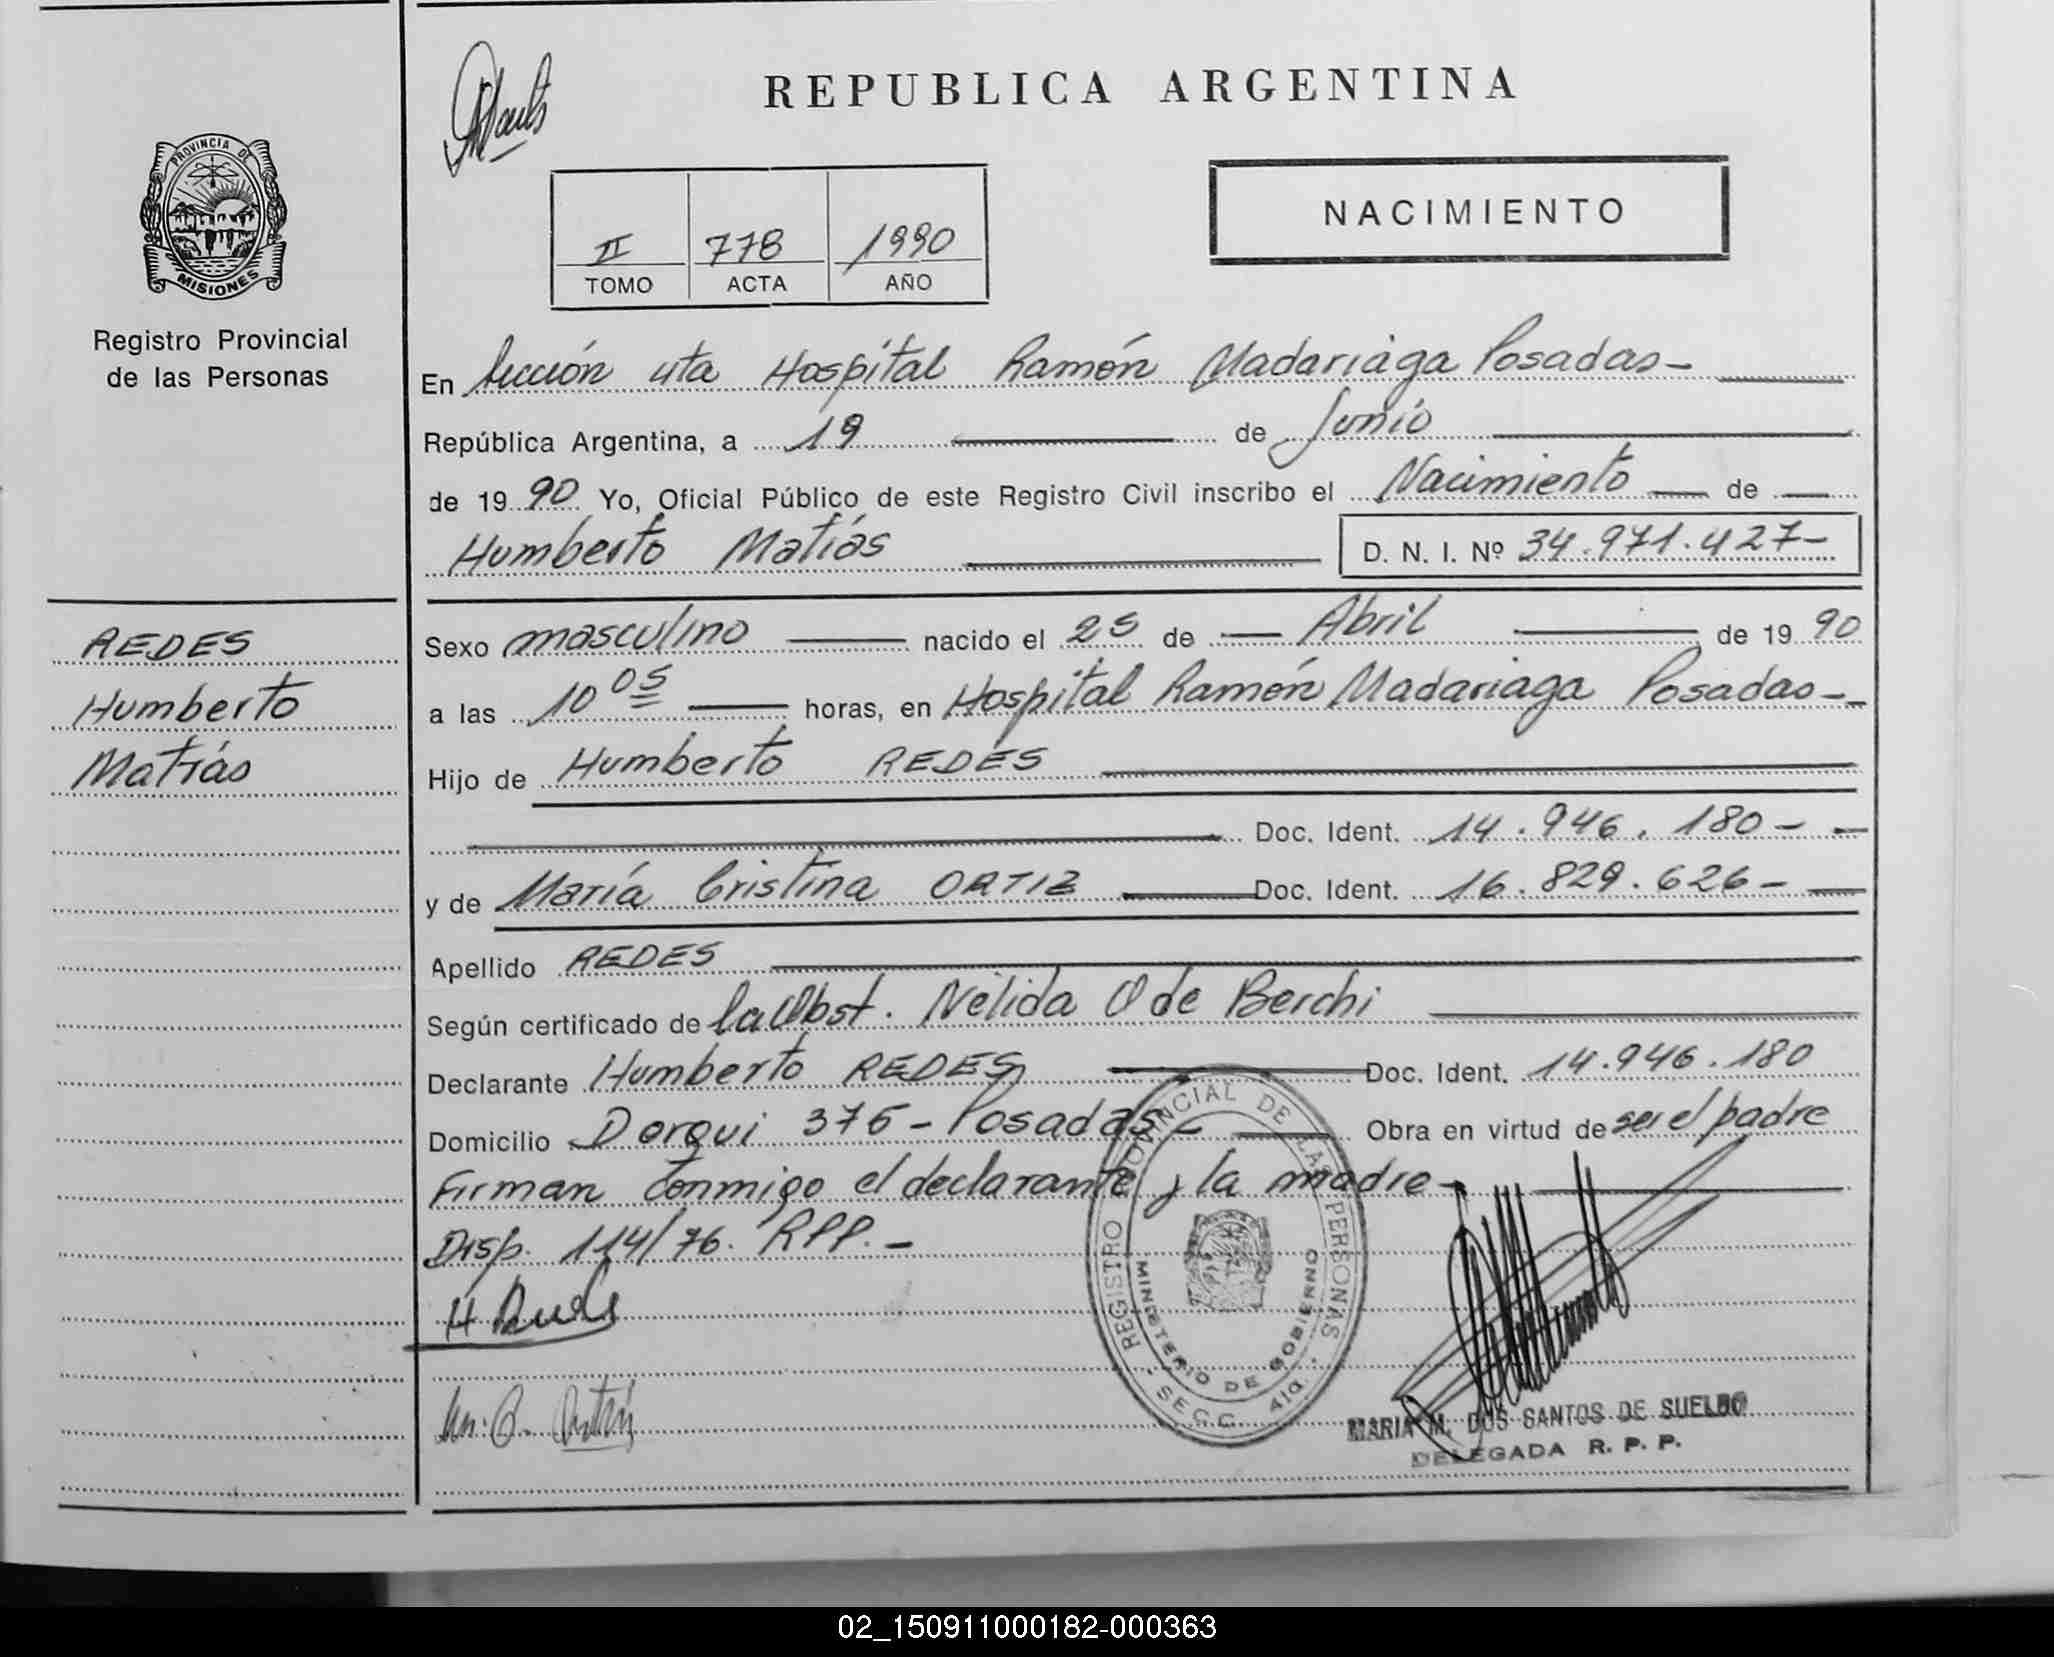 REPUBLICA ARGENTINA
PROVINCIA DE
MISIONES
Registro Provincial
de las Personas
NACIMIENTO
II 778 1990
TOMO ACTA AÑO
En Sección 4ta Hospital Ramón Madariaga Posadas-
República Argentina, a 19 de Junio
de 1990 Yo, Oficial Público de este Registro Civil inscribo el Nacimiento de
Humberto Matías D. N. I. Nº 34.971.427-
REDES
Humberto
Matías
Sexo masculino nacido el 25 de Abril de 1990
a las 10 05 horas, en Hospital Ramón Madariaga Posadas-
Hijo de Humberto REDES
Doc. Ident. 14.946.180-
y de María Cristina ORTIZ Doc. Ident. 16.829.626-
Apellido REDES
Según certificado de la Obst. Nélida O de Berchi
Declarante Humberto REDES Doc. Ident. 14.946.180
Domicilio Dorqui 376 - Posadas - Obra en virtud de ser el padre
Firman conmigo el declarante y la madre-
Disp. 114/76. RPP.-
REGISTRO PROVINCIAL DE LAS PERSONAS
MINISTERIO DE GOBIERNO
- SECC. 4ta. -
MARIA M. DOS SANTOS DE SUELDO
DELEGADA R. P. P.
02_150911000182-000363